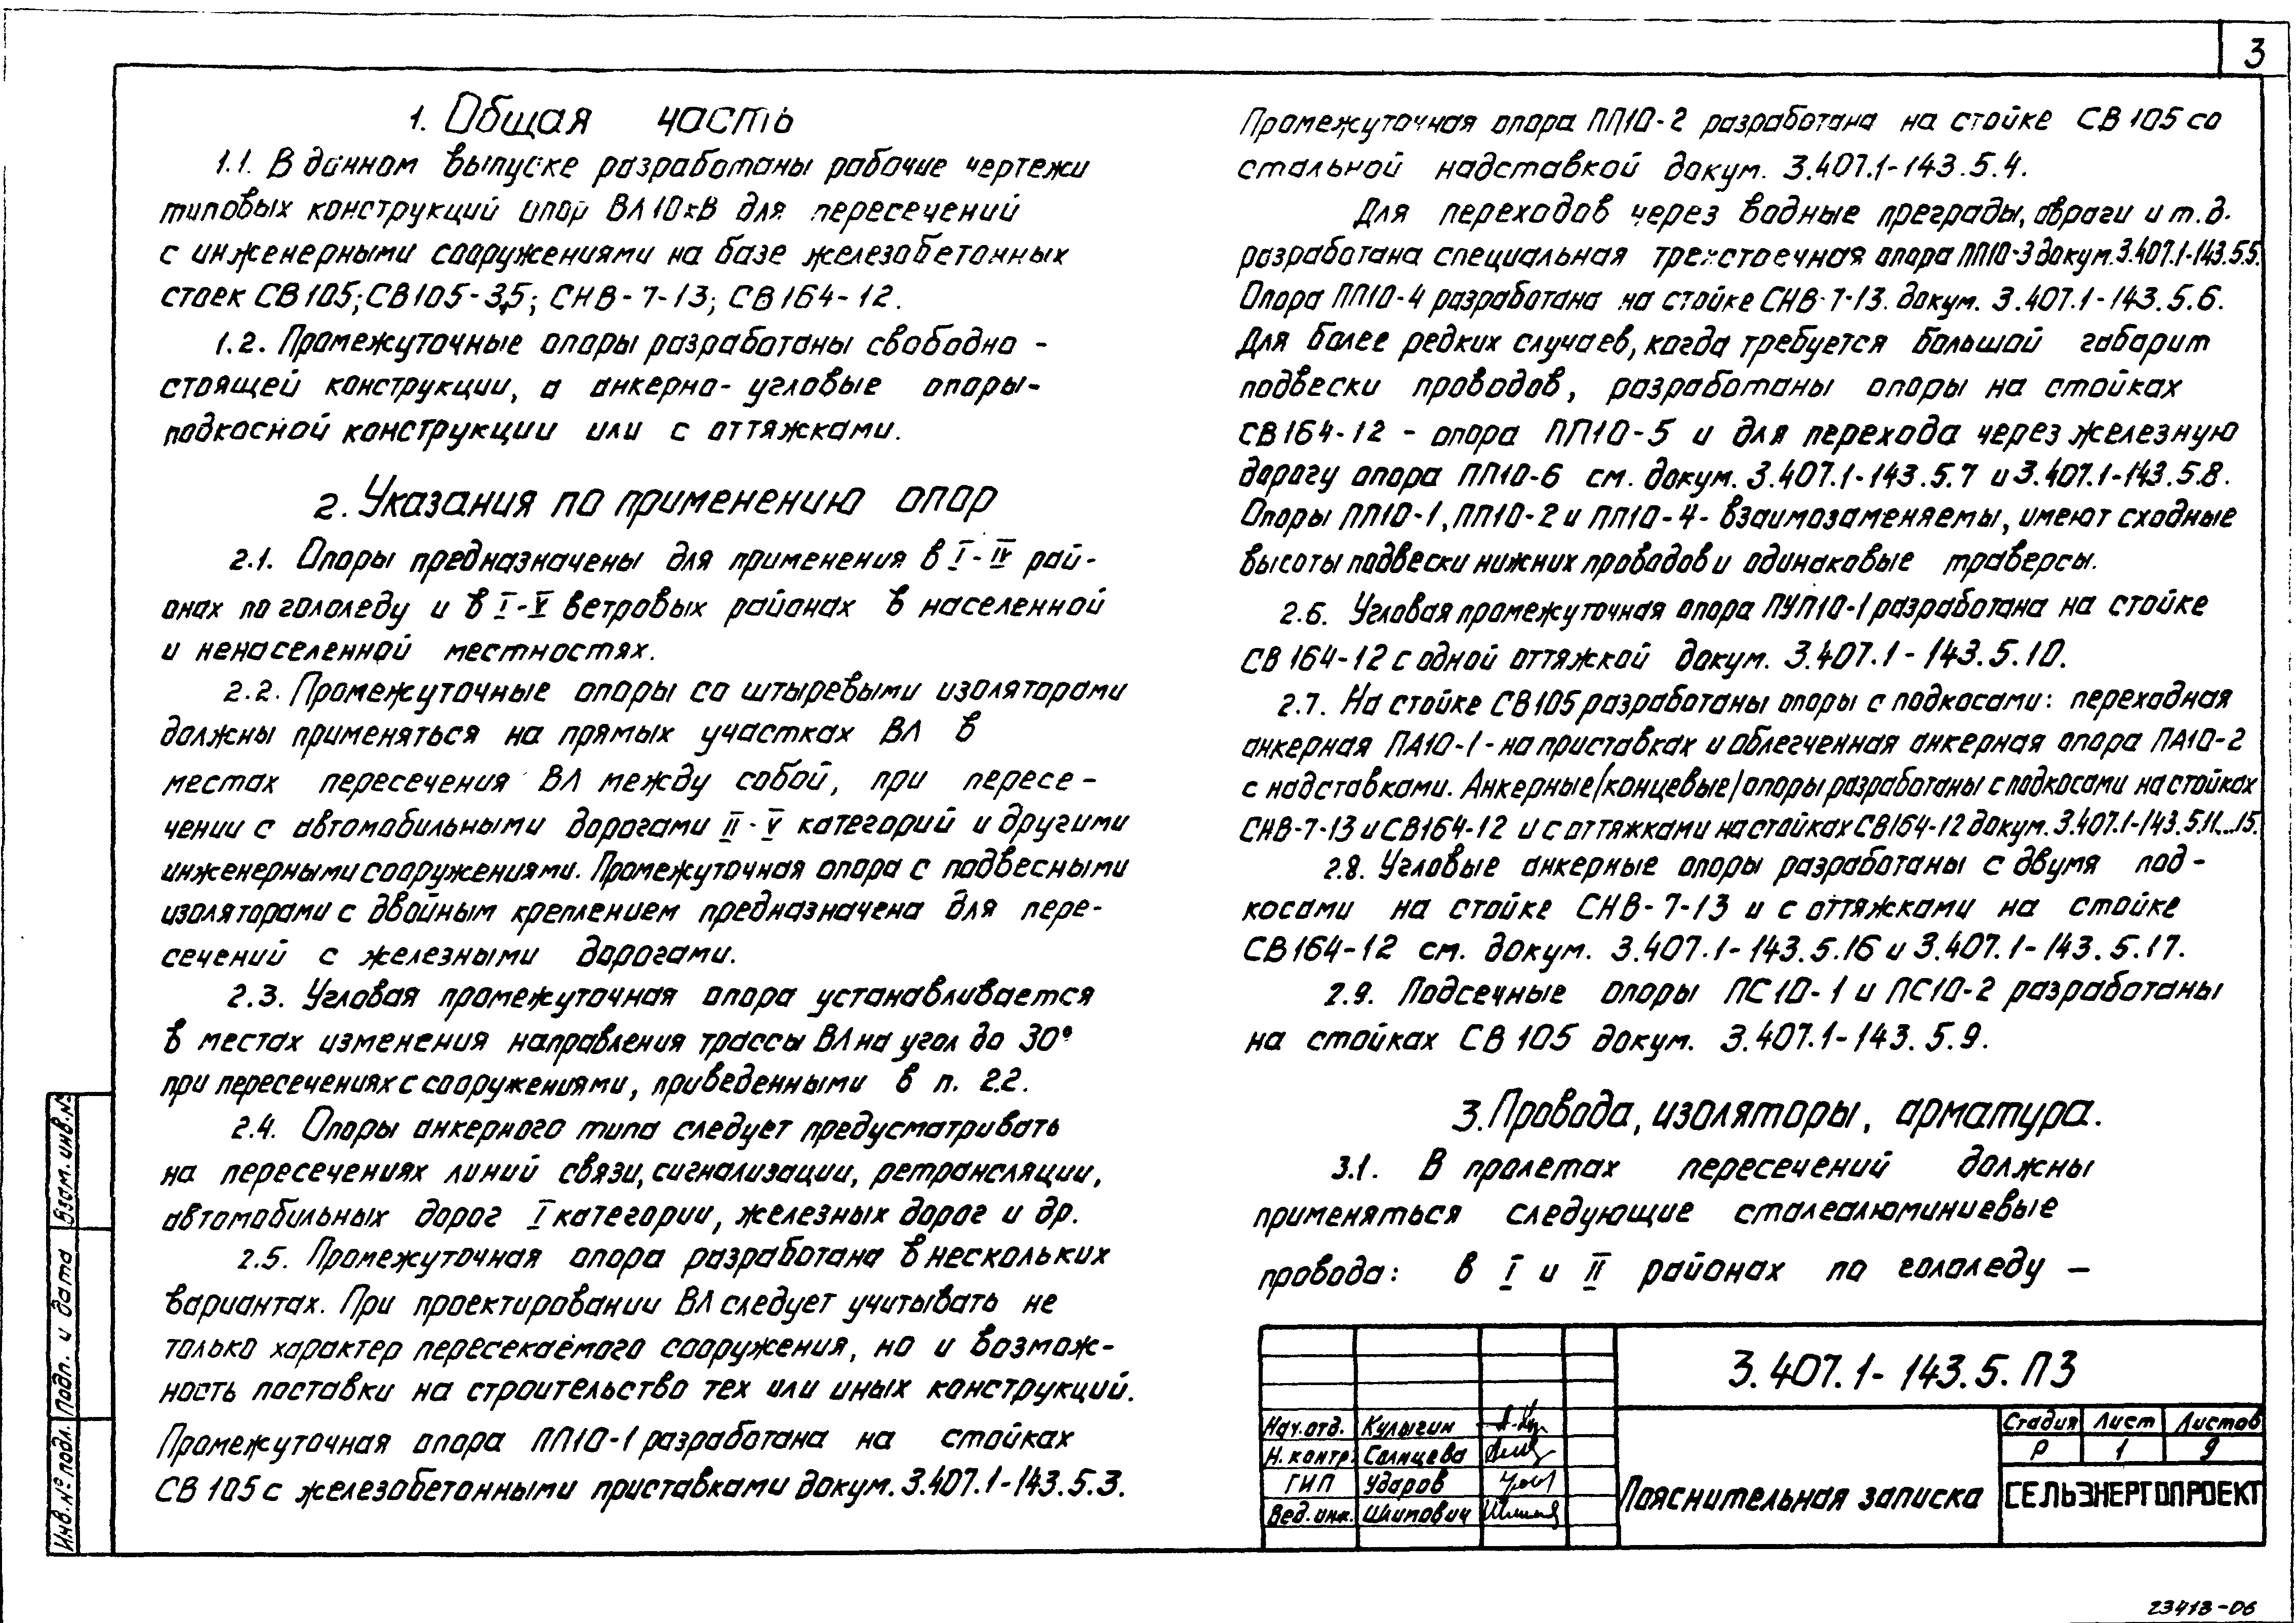 3
1. Общая часть
1.1. В данном выпуске разработаны рабочие чертежи
типовых конструкций опор ВЛ10кВ для пересечений
с инженерными сооружениями на базе железобетонных
стоек СВ105; СВ105-3,5; СНВ-7-13; СВ164-12.
1.2. Промежуточные опоры разработаны свободно-
стоящей конструкции, а анкерно-угловые опоры-
подкосной конструкции или с оттяжками.
2. Указания по применению опор
2.1. Опоры предназначены для применения в I-IV рай-
онах по гололеду и в I-V ветровых районах в населенной
и ненаселенной местностях.
2.2. Промежуточные опоры со штыревыми изоляторами
должны применяться на прямых участках ВЛ в
местах пересечения ВЛ между собой, при пересе-
чении с автомобильными дорогами II-V категорий и другими
инженерными сооружениями. Промежуточная опора с подвесными
изоляторами с двойным креплением предназначена для пере-
сечений с железными дорогами.
2.3. Угловая промежуточная опора устанавливается
в местах изменения направления трассы ВЛ на угол до 30°
при пересечениях с сооружениями, приведенными в п. 2.2.
2.4. Опоры анкерного типа следует предусматривать
на пересечениях линий связи, сигнализации, ретрансляции,
автомобильных дорог I категории, железных дорог и др.
2.5. Промежуточная опора разработана в нескольких
вариантах. При проектировании ВЛ следует учитывать не
только характер пересекаемого сооружения, но и возмож-
ность поставки на строительство тех или иных конструкций.
Промежуточная опора ПП10-1 разработана на стойках
СВ105 с железобетонными приставками докум. 3.407.1-143.5.3.
Промежуточная опора ПП10-2 разработана на стойке СВ105 со
стальной надставкой докум. 3.407.1-143.5.4.
Для переходов через водные преграды, овраги и т.д.
разработана специальная трехстоечная опора ПП10-3 докум. 3.407.1-143.5.5.
Опора ПП10-4 разработана на стойке СНВ-7-13. докум. 3.407.1-143.5.6.
Для более редких случаев, когда требуется большой габарит
подвески проводов, разработаны опоры на стойках
СВ164-12 - опора ПП10-5 и для перехода через железную
дорогу опора ПП10-6 см. докум. 3.407.1-143.5.7 и 3.407.1-143.5.8.
Опоры ПП10-1, ПП10-2 и ПП10-4- взаимозаменяемы, имеют сходные
высоты подвески нижних проводов и одинаковые траверсы.
2.6. Угловая промежуточная опора ПУП10-1 разработана на стойке
СВ164-12 с одной оттяжкой докум. 3.407.1-143.5.10.
2.7. На стойке СВ105 разработаны опоры с подкосами: переходная
анкерная ПА10-1 - на приставках и облегченная анкерная опора ПА10-2
с надставками. Анкерные/концевые/опоры разработаны с подкосами на стойках
СНВ-7-13 и СВ164-12 и с оттяжками на стойках СВ164-12 докум. 3.407.1-143.5.11...15.
2.8. Угловые анкерные опоры разработаны с двумя под-
косами на стойке СНВ-7-13 и с оттяжками на стойке
СВ164-12 см. докум. 3.407.1-143.5.16 и 3.407.1-143.5.17.
2.9. Подсечные опоры ПС10-1 и ПС10-2 разработаны
на стойках СВ105 докум. 3.407.1-143.5.9.
3. Провода, изоляторы, арматура.
3.1. В пролетах пересечений должны
применяться следующие сталеалюминиевые
провода: в I и II районах по гололеду -
3.407.1-143.5.ПЗ
Нач.отд. Кулыгин
Н.контр. Солнцева
ГИП Ударов
Вед.инж. Шлипович
Пояснительная записка
Стадия Лист Листов
Р 1 9
СЕЛЬЭНЕРГОПРОЕКТ
Взам. инв. №
Подп. и дата
Инв. № подл.
23413-06